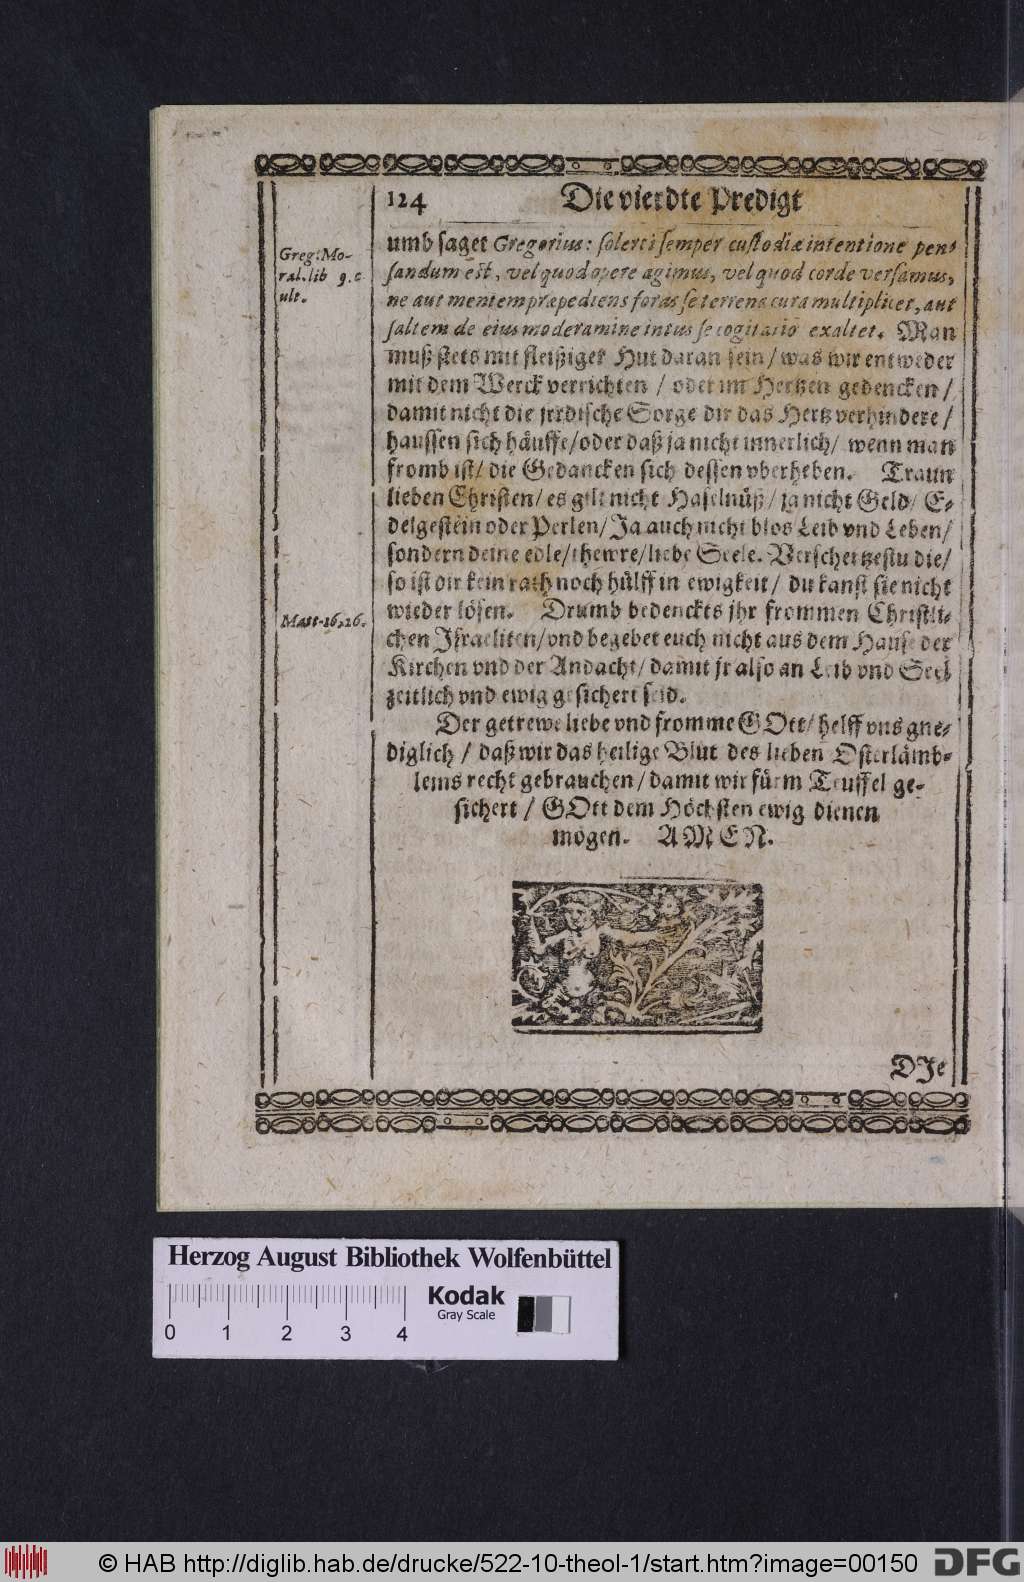 124 Die vierdte Predigt
umb saget Gregorius: solerti semper custodiæ intentione pen-
sandum est, vel quod opere agimus, vel quod corde versamus,
ne aut mentem præpediens foras se terrena cura multiplicet, aut
saltem de eius moderamine intus se cogitatio exaltet. Man
muß stets mit fleißiger Hut daran sein / was wir entweder
mit dem Werck verrichten / oder im Hertzen gedencken /
damit nicht die jrrdische Sorge dir das Hertz verhindere /
haussen sich häuffe / oder daß ja nicht innerlich / wenn man
fromb ist / die Gedancken sich dessen vberheben. Traun
lieben Christen / es gilt nicht Haselnüß / ja nicht Geld / E-
delgestein oder Perlen / Ja auch nicht blos Leib vnd Leben /
sondern deine edle / thewre / liebe Seele. Verschertzestu die /
so ist dir kein rath noch hülff in ewigkeit / du kanst sie nicht
wieder lösen. Drumb bedenckts jhr frommen Christli-
chen Israeliten / vnd begebet euch nicht aus dem Hause der
Kirchen vnd der Andacht / damit jr also an Leib vnd Seel
zeitlich vnd ewig gesichert seid.
Der getrewe liebe vnd fromme GOtt / helff vns gne-
diglich / daß wir das heilige Blut des lieben Osterlämb-
leins recht gebrauchen / damit wir fürm Teuffel ge-
sichert / GOtt dem Höchsten ewig dienen
mögen. AMEN.
DJe
Greg. Mo-
ral. lib 9. c
ult.
Matt. 16, 26.
Herzog August Bibliothek Wolfenbüttel
Kodak
Gray Scale
0 1 2 3 4
© HAB http://diglib.hab.de/drucke/522-10-theol-1/start.htm?image=00150
DFG